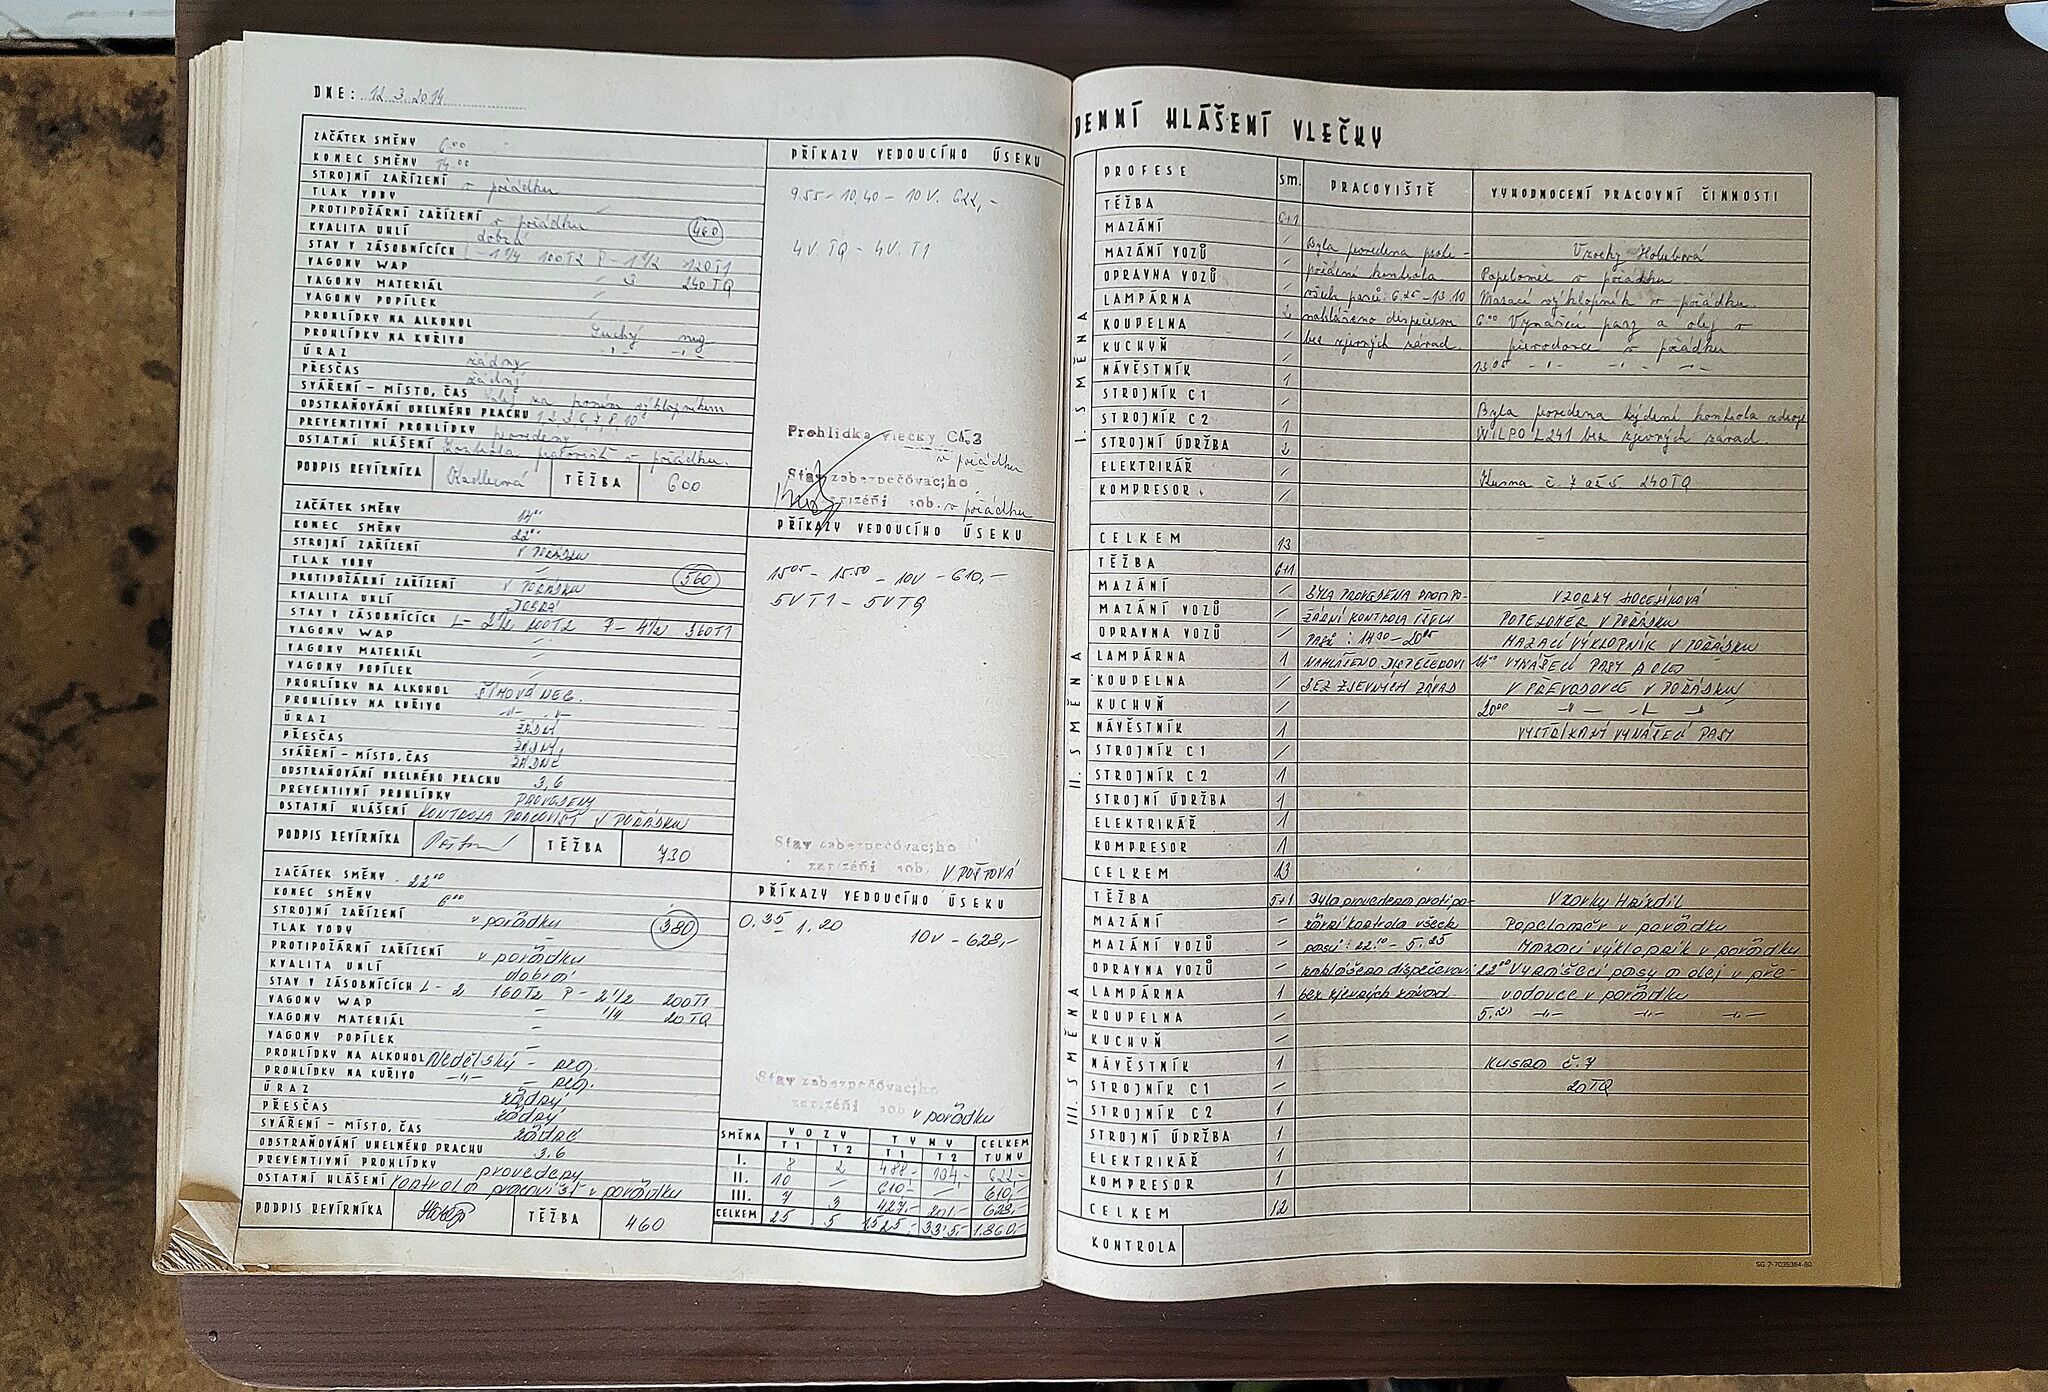 DNE: 12.3.2014
ZAČÁTEK SMĚNY 6⁰⁰
KONEC SMĚNY 14⁰⁰
STROJNÍ ZAŘÍZENÍ v pořádku
TLAK VODY /
PROTIPOŽÁRNÍ ZAŘÍZENÍ v pořádku
KVALITA UHLÍ dobrá 460
STAV V ZÁSOBNÍCÍCH L-1 1/4 100T2 P-1 1/2 120T1
VAGONY WAP 3 240TQ
VAGONY MATERIÁL /
VAGONY POPÍLEK
PROHLÍDKY NA ALKOHOL Suchý neg
PROHLÍDKY NA KUŘIVO -"- -"-
ÚRAZ žádný
PŘESČAS žádný
SVÁŘENÍ - MÍSTO, ČAS
ODSTRAŇOVÁNÍ UHELNÉHO PRACHU
PREVENTIVNÍ PROHLÍDKY provedeny
OSTATNÍ HLÁŠENÍ Kontrola pracovišť v pořádku.
PODPIS REVÍRNÍKA Kadlecová TĚŽBA 600
PŘÍKAZY VEDOUCÍHO ÚSEKU
9.55 - 10.40 - 10V. 622,-
4V. TQ - 4V. T1
Prohlídka vlečky Čš.3
v pořádku
Stav zabezpečovacího
zařízení sob. v pořádku
ZAČÁTEK SMĚNY 14⁰⁰
KONEC SMĚNY 22⁰⁰
STROJNÍ ZAŘÍZENÍ V POŘÁDKU
TLAK VODY /
PROTIPOŽÁRNÍ ZAŘÍZENÍ V POŘÁDKU 560
KVALITA UHLÍ DOBRÁ
STAV V ZÁSOBNÍCÍCH L-2 1/2 200T2 P-4 1/2 360T1
VAGONY WAP /
VAGONY MATERIÁL /
VAGONY POPÍLEK /
PROHLÍDKY NA ALKOHOL ŠÍMOVÁ NEG.
PROHLÍDKY NA KUŘIVO -"- -"-
ÚRAZ ŽÁDNÝ
PŘESČAS ŽÁDNÝ
SVÁŘENÍ - MÍSTO, ČAS ŽÁDNÉ
ODSTRAŇOVÁNÍ UHELNÉHO PRACHU 3,6
PREVENTIVNÍ PROHLÍDKY PROVEDENY
OSTATNÍ HLÁŠENÍ KONTROLA PRACOVIŠŤ V POŘÁDKU
PODPIS REVÍRNÍKA TĚŽBA 730
PŘÍKAZY VEDOUCÍHO ÚSEKU
15⁰⁵ - 15.50 - 10V - 610,-
5V T1 - 5V TQ
Stav zabezpečovacího
zařízení sob.
ZAČÁTEK SMĚNY 22⁰⁰
KONEC SMĚNY 6⁰⁰
STROJNÍ ZAŘÍZENÍ v pořádku 380
TLAK VODY -
PROTIPOŽÁRNÍ ZAŘÍZENÍ v pořádku
KVALITA UHLÍ dobrá
STAV V ZÁSOBNÍCÍCH L-2 160T2 P-2 1/2 200T1
VAGONY WAP - 1/4 20TQ
VAGONY MATERIÁL -
VAGONY POPÍLEK -
PROHLÍDKY NA ALKOHOL Nedělský - neg.
PROHLÍDKY NA KUŘIVO -"- - neg.
ÚRAZ žádný
PŘESČAS žádný
SVÁŘENÍ - MÍSTO, ČAS žádné
ODSTRAŇOVÁNÍ UHELNÉHO PRACHU 3,6
PREVENTIVNÍ PROHLÍDKY provedeny
OSTATNÍ HLÁŠENÍ Kontrola pracovišť v pořádku
PODPIS REVÍRNÍKA TĚŽBA 460
PŘÍKAZY VEDOUCÍHO ÚSEKU
0.35 - 1.20 10V - 628,-
Stav zabezpečovacího
zařízení sob. v pořádku
SMĚNA VOZY TUNY CELKEM
T1 T2 T1 T2 TUNY
I. 8 2 488,- 134,- 622,-
II. 10 / 610,- / 610,-
III. 7 3 427,- 201,- 628,-
CELKEM 25 5 1525,- 335,- 1.860,-
DENNÍ HLÁŠENÍ VLEČKY
PROFESE sm. PRACOVIŠTĚ VYHODNOCENÍ PRACOVNÍ ČINNOSTI
I. SMĚNA
TĚŽBA 6+1
MAZÁNÍ / Byla provedena proti- Vzorky Holubová
MAZÁNÍ VOZŮ / požární kontrola Popeloměr v pořádku
OPRAVNA VOZŮ / všech pasů: 6.25-13.10 Mazací výklopník v pořádku.
LAMPÁRNA 2 nahlášeno dispečerovi 6⁰⁰ Vynášecí pasy a olej v
KOUPELNA / bez zjevných závad. převodovce v pořádku
KUCHYŇ / 13⁰⁵ -"- -"- -"-
NÁVĚSTNÍK 1
STROJNÍK C1 / Byla provedena týdenní kontrola zdroje
STROJNÍK C2 1 WILPO L241 bez zjevných závad.
STROJNÍ ÚDRŽBA 2
ELEKTRIKÁŘ / Kusna č. 7 až 5 240TQ
KOMPRESOR /
CELKEM 13
II. SMĚNA
TĚŽBA 6+1
MAZÁNÍ / BYLA PROVEDENA PROTIPO- VZORKY
MAZÁNÍ VOZŮ / ŽÁRNÍ KONTROLA VŠECH POPELOMĚR V POŘÁDKU
OPRAVNA VOZŮ / PASŮ: 14³⁰-20⁰⁵ MAZACÍ VÝKLOPNÍK V POŘÁDKU
LAMPÁRNA 1 NAHLÁŠENO DISPEČEROVI 14⁰⁰ VYNÁŠECÍ PASY A OLEJ
KOUPELNA / BEZ ZJEVNÝCH ZÁVAD V PŘEVODOVCE V POŘÁDKU
KUCHYŇ / 20⁰⁰ -"- -"- -"-
NÁVĚSTNÍK 1 VYSTŘÍKANÝ VYNÁŠECÍ PASY
STROJNÍK C1 /
STROJNÍK C2 1
STROJNÍ ÚDRŽBA 1
ELEKTRIKÁŘ 1
KOMPRESOR 1
CELKEM 13
III. SMĚNA
TĚŽBA 5+1 Byla provedena protipo- Vzorky
MAZÁNÍ - žární kontrola všech Popeloměr v pořádku
MAZÁNÍ VOZŮ - pasů: 22.10 - 5.25 Mazací výklopník v pořádku
OPRAVNA VOZŮ - nahlášeno dispečerovi 22⁰⁰ Vynášecí pasy a olej v pře-
LAMPÁRNA 1 bez zjevných závad. vodovce v pořádku
KOUPELNA / -"- -"- -"-
KUCHYŇ /
NÁVĚSTNÍK 1 KUSNA č.7
STROJNÍK C1 / 20TQ
STROJNÍK C2 1
STROJNÍ ÚDRŽBA 1
ELEKTRIKÁŘ 1
KOMPRESOR 1
CELKEM 12
KONTROLA
SG 7-7035384-80